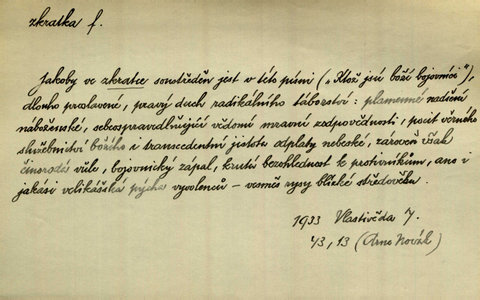 zkratka f.
Jakoby ve zkratce soustředěn jest v této písni („Ktož jsú boží bojovníci“),
dlouho proslavené, pravý duch radikálního táborství: plamenné nadšení
náboženské, sebeospravedlňující vědomí mravní zodpovědnosti, pocit věrného
služebnictví božího i transcedentní jistota odplaty nebeské, zároveň však
činorodá vůle, bojovnický zápal, krutá bezohlednost k protivníkům, ano i
jakási velikášská pýcha vyvolenců – vesměs rysy blízké středověku.
1933 Vlastivěda 7.
43, 13 (Arne Novák)